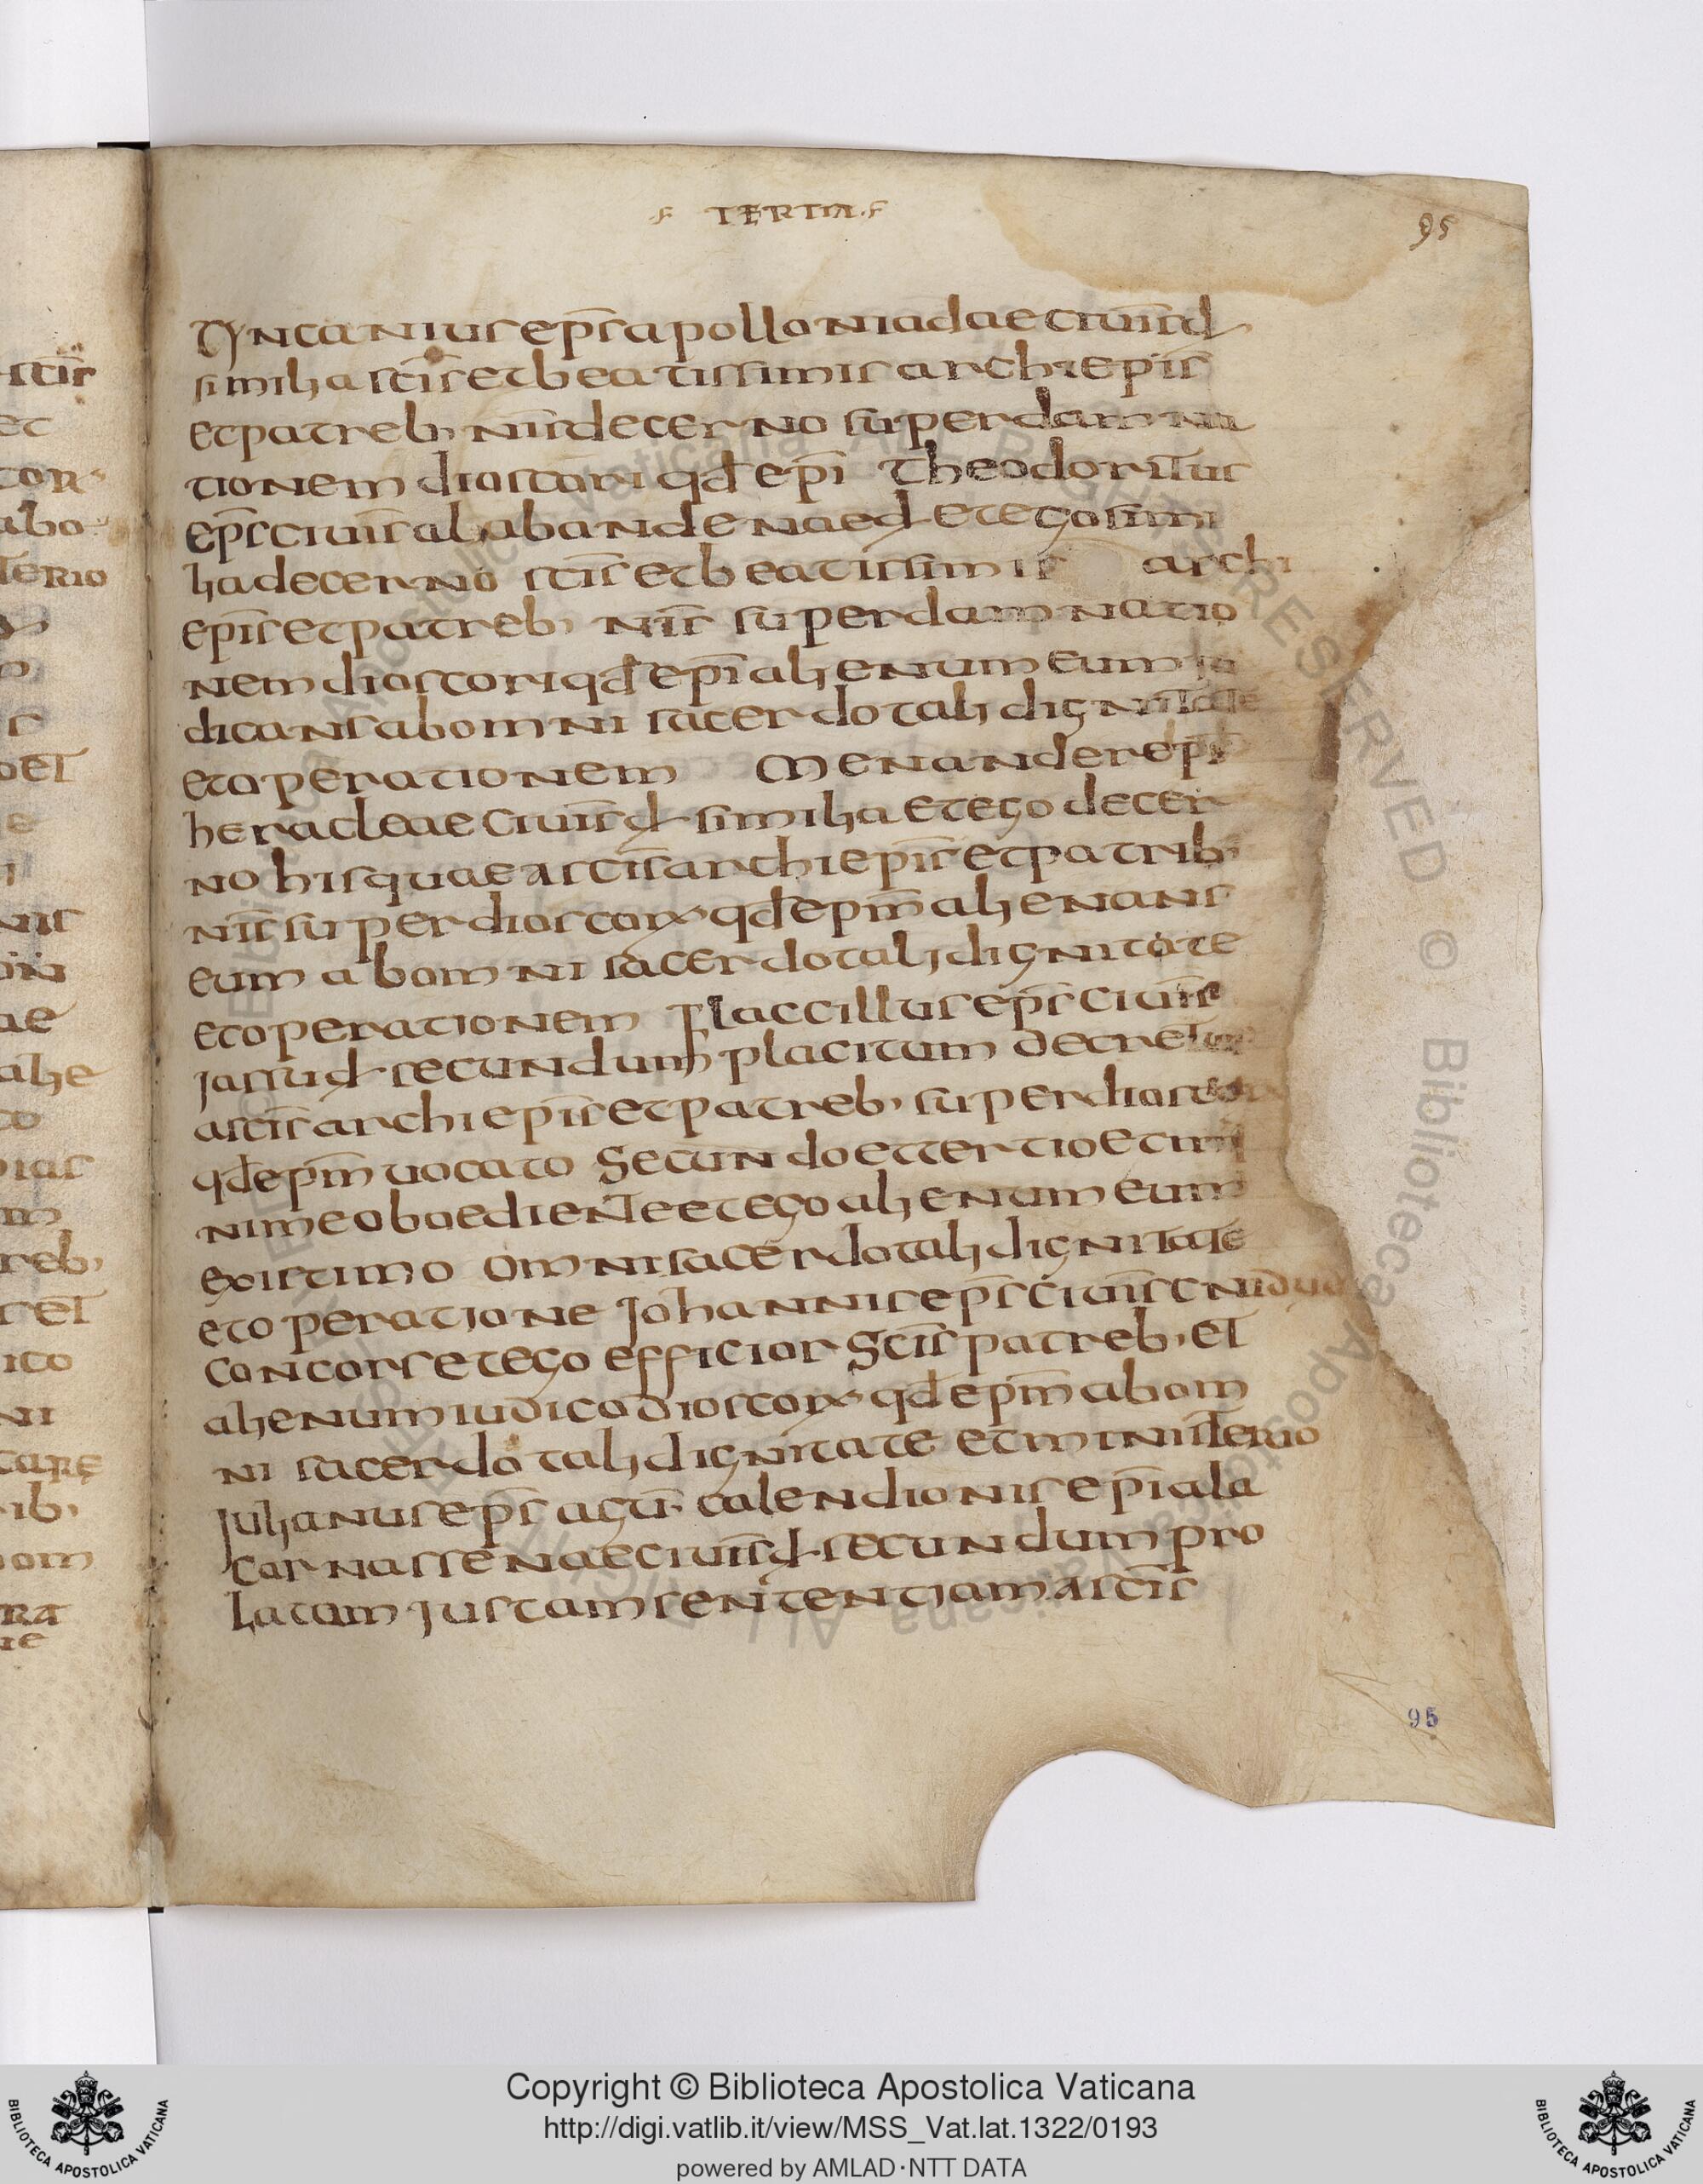 TERTIA
95
Tyncanius ep̄s apolloniadae ciuīt d
similia sc̄is et beatissimis archiep̄is
et patreb, nr̄is decerno super damna
tionem dioscori qd̄ ep̄i Theodoritus
ep̄s ciuīt alabandenae d et ego simi
lia decerno sc̄is et beatissimis archi
ep̄is et patreb, nr̄is super damnatio
nem dioscori qd̄ ep̄i alienum eum iu
dicans ab omni sacerdotali dignitate
et operationem Menander ep̄s
heracleae ciuīt d similia et ego decer
no his quae a sc̄is archiep̄is et patrib,
nr̄is super dioscorx qd̄ ep̄m alienans
eum ab omni sacerdotali dignitate
et operationem Flaccillus ep̄s ciuīt
Jassu d secundum placitum decretor
a sc̄is archiep̄is et patreb, super dioscor
qd̄ ep̄m uocato Secundo et tertio et mi
nime oboediente et ego alienum eum
existimo omni sacerdotali dignitate
et operatione Johannis ep̄s ciuīt cnidu d
concors et ego efficior Sc̄is patreb, et
alienum iudico dioscorx qd̄ ep̄m ab om
ni sacerdotali dignitate et ministerio
Julianus ep̄s agū calendionis ep̄i ala
carnassenae ciuīt d secundum pro
Latam justam sententiam a sc̄is
95
Copyright © Biblioteca Apostolica Vaticana
http://digi.vatlib.it/view/MSS_Vat.lat.1322/0193
powered by AMLAD·NTT DATA
BIBLIOTECA APOSTOLICA VATICANA
BIBLIOTECA APOSTOLICA VATICANA